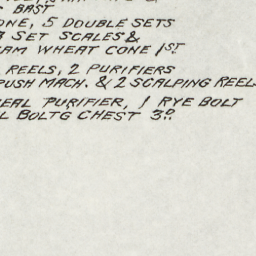 BAST
ONE, 5 DOUBLE SETS
3 SET SCALES &
AM WHEAT CONE 1ST
REELS, 2 PURIFIERS
PUSH MACH. & 2 SCALPING REEL
EAL PURIFIER, 1 RYE BOLT
L BOLTG CHEST 3D